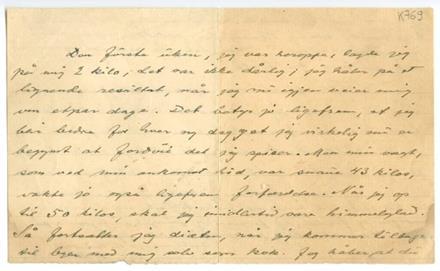 K769
Den förste uken, jeg var heroppe, lagde jeg
på mig 2 kilo; det var ikke dårlig; jeg håber på et
lignende resultat, når jeg nu igjen veier mig
om et par dage. Det betyr jo ligefrem, at jeg
blir bedre for hver dag, at jeg virkelig nu er
begynt at fordøie det jeg spiser. Men min vægt,
som ved min ankomst hid, var snaue 43 kilos,
vakte jo også ligefrem forfærdelse. Når jeg op
til 50 kilos, skal jeg imidlertid være himmelglad.
Så fortsætter jeg diæten, når jeg kommer tilbage
til byen med mig selv som kok. Jeg håber at du